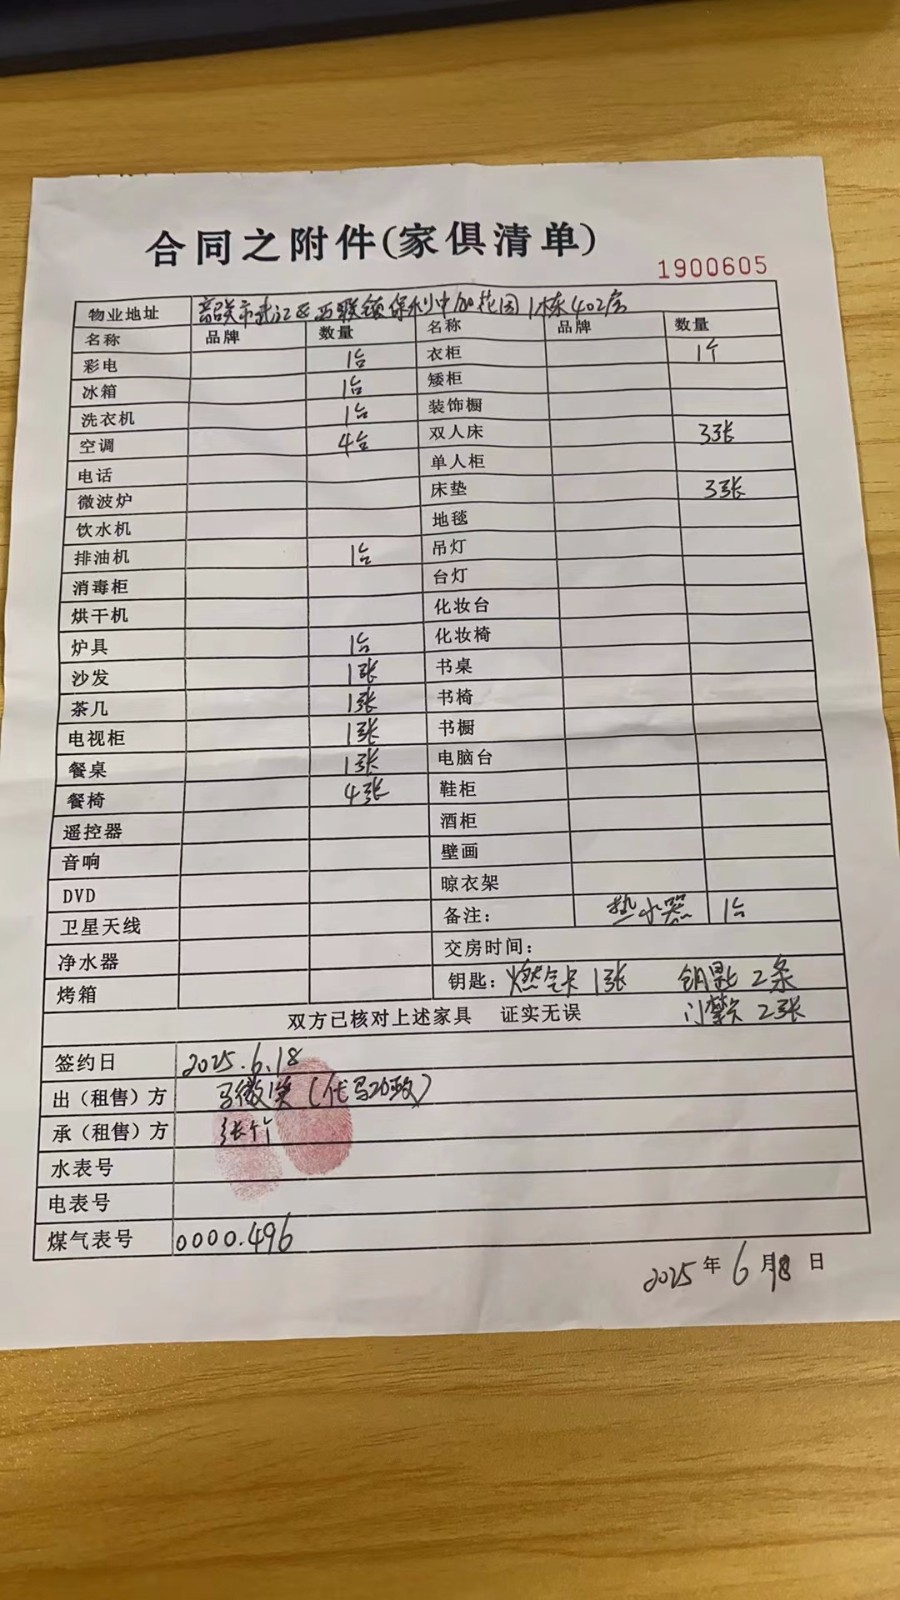 合同之附件(家俱清单)
1900605
物业地址 韶关市武江区西联镇保利中加花园1栋402房
名称 品牌 数量 名称 品牌 数量
彩电 1台 衣柜 1个
冰箱 1台 矮柜
洗衣机 1台 装饰橱
空调 4台 双人床 3张
电话 单人柜
微波炉 床垫 3张
饮水机 地毯
排油机 1台 吊灯
消毒柜 台灯
烘干机 化妆台
炉具 1台 化妆椅
沙发 1张 书桌
茶几 1张 书椅
电视柜 1张 书橱
餐桌 1张 电脑台
餐椅 4张 鞋柜
遥控器 酒柜
音响 壁画
DVD 晾衣架
卫星天线 备注: 热水器 1台
净水器 交房时间:
烤箱 钥匙: 燃气卡 1张 钥匙 2条
门禁 2张
双方已核对上述家具 证实无误
签约日 2025.6.18
出（租售）方 (代
承（租售）方 张
水表号
电表号
煤气表号 0000.496
2025年6月18日